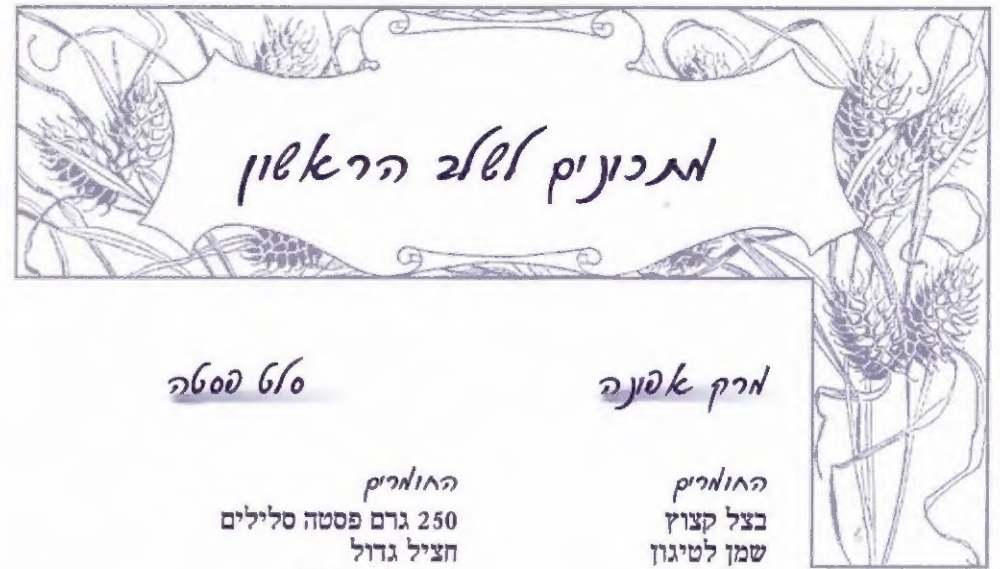 מתכונים לשלב הראשון
מרק אפונה
החומרים
בצל קצוץ
שמן לטיגון
סלט פסטה
החומרים
250 גרם פסטה סלילים
חציל גדול